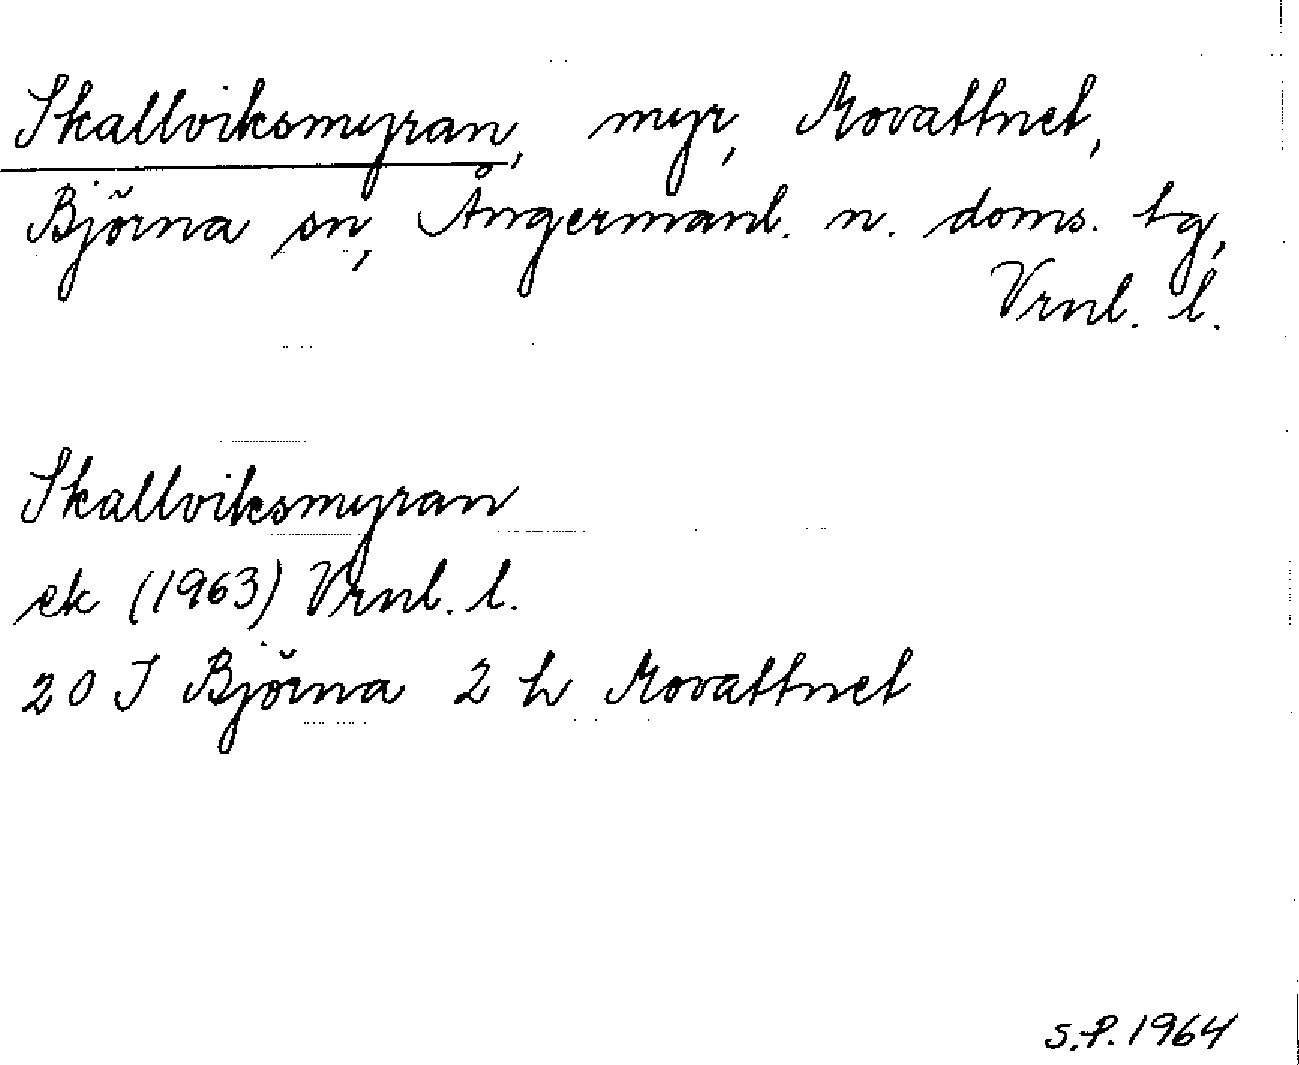 Skallviksmyran, myr, Movattnet,
Björna sn, Ångermanl. n. doms. tg,
Vrnl. l.
Skallviksmyran
ek (1963) Vrnl. l.
20 I Björna 2 h Movattnet
S.P. 1964